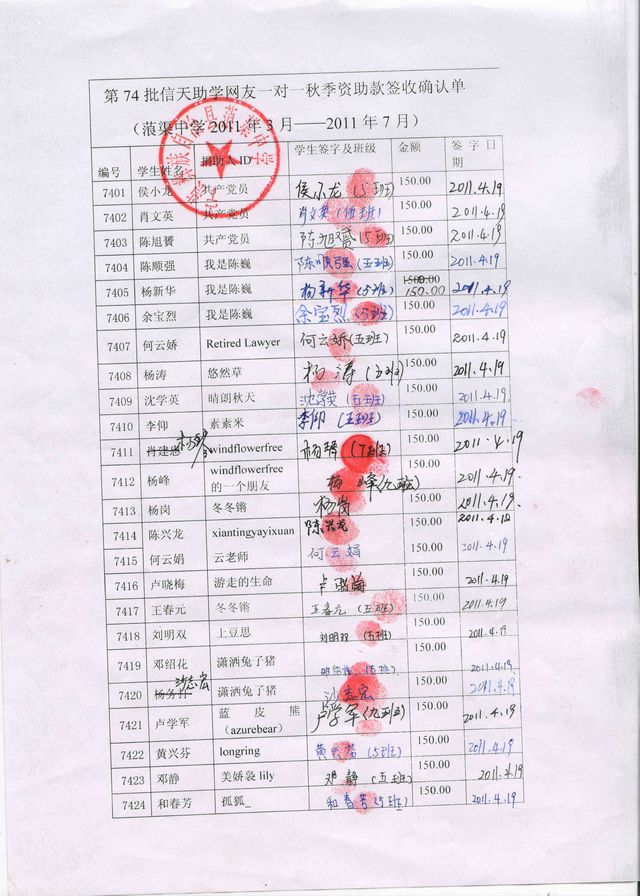 第 74 批信天助学网友一对一秋季资助款签收确认单
（蒗渠中学 2011 年 3 月——2011 年 7 月）
编号 学生姓名 捐助人 ID 学生签字及班级 金额 签字日期
7401 侯小龙 共产党员 侯小龙（5班） 150.00 2011.4.19
7402 肖文英 共产党员 肖文英（伍班） 150.00 2011.4.19
7403 陈旭赟 共产党员 陈旭赟（5班） 150.00 2011.4.19
7404 陈顺强 我是陈巍 陈顺强（五班） 150.00 2011.4.19
7405 杨新华 我是陈巍 杨新华（5班） 1500.00 150.00 2011.4.19
7406 余宝烈 我是陈巍 余宝烈（5班） 150.00 2011.4.19
7407 何云娇 Retired Lawyer 何云娇（五班） 150.00 2011.4.19
7408 杨涛 悠然草 杨涛（五班） 150.00 2011.4.19
7409 沈学英 晴朗秋天 沈学英（五班） 150.00 2011.4.19
7410 李仰 素素米 李仰（五班） 150.00 2011.4.19
7411 windflowerfree （7班） 150.00 2011.4.19
7412 杨峰 windflowerfree 的一个朋友 杨峰（九班） 150.00 2011.4.19
7413 杨岗 冬冬锵 杨岗 150.00 2011.4.19
7414 陈兴龙 xiantingyayixuan 陈兴龙 150.00 2011.4.19
7415 何云娟 云老师 何云娟 150.00 2011.4.19
7416 卢晓梅 游走的生命 卢晓梅 150.00 2011.4.19
7417 王春元 冬冬锵 王春元（五班） 150.00 2011.4.19
7418 刘明双 上豆思 刘明双（五班） 150.00 2011.4.19
7419 邓绍花 潇洒兔子猪 （五班） 150.00 2011.4.19
7420 沙志宏 潇洒兔子猪 沙志宏 150.00 2011.4.19
7421 卢学军 蓝皮熊（azurebear） 卢学军（九班） 150.00 2011.4.19
7422 黄兴芬 longring 黄兴芬（5班） 150.00 2011.4.19
7423 邓静 美娇袅 lily 邓静（五班） 150.00 2011.4.19
7424 和春芳 孤狐_ 和春芳（5班） 150.00 2011.4.19